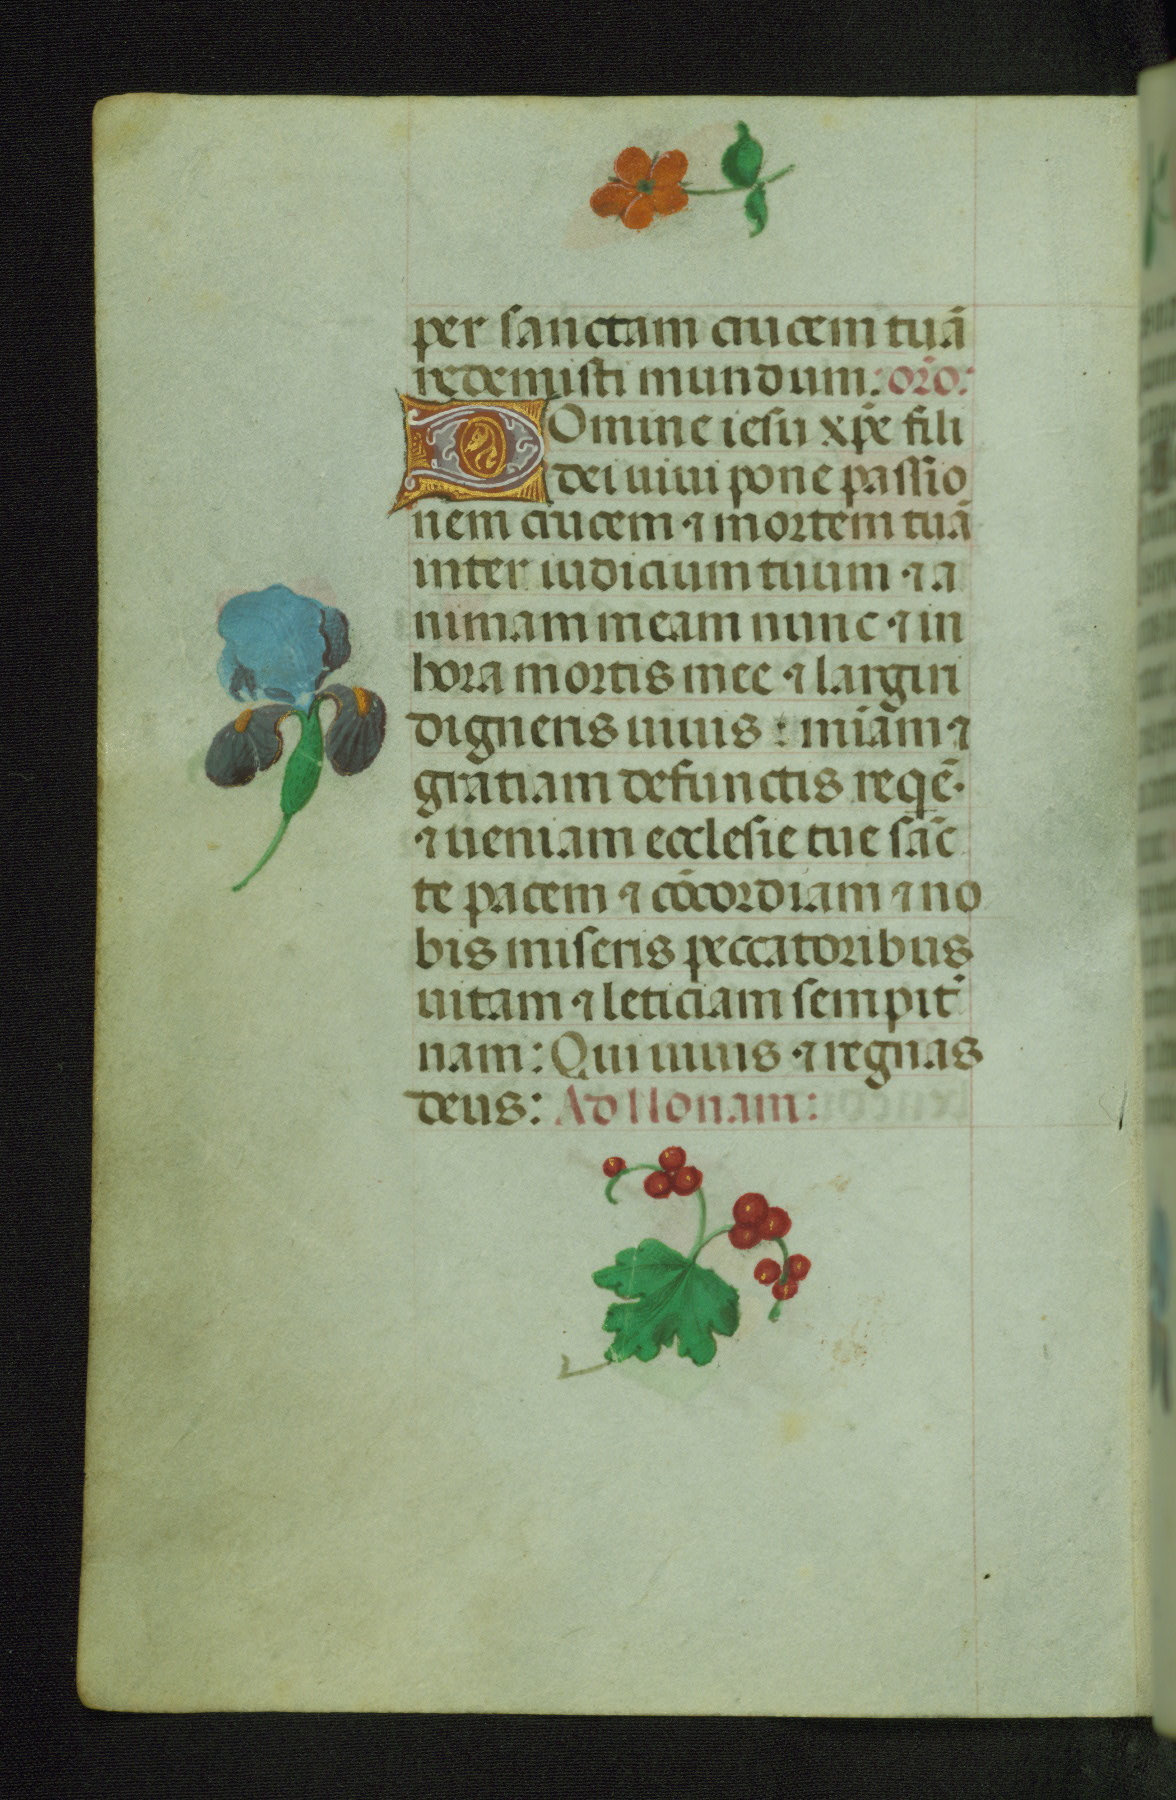 per sanctam crucem tuā
redemisti mundum: orō:
Domine iesu xp̄e fili
dei uiui pone passio
nem crucem ⁊ mortem tuā
inter iudicium tuum ⁊ a
nimam meam nunc ⁊ in
hora mortis mee ⁊ largiri
digneris uiuis : miām ⁊
gratiam defunctis reqē·
⁊ ueniam ecclesie tue sāc
te pacem ⁊ cōcordiam ⁊ no
bis miseris peccatoribus
uitam ⁊ leticiam sempit̄
nam: Qui uiuis ⁊ regnas
deus: Ad Nonam: